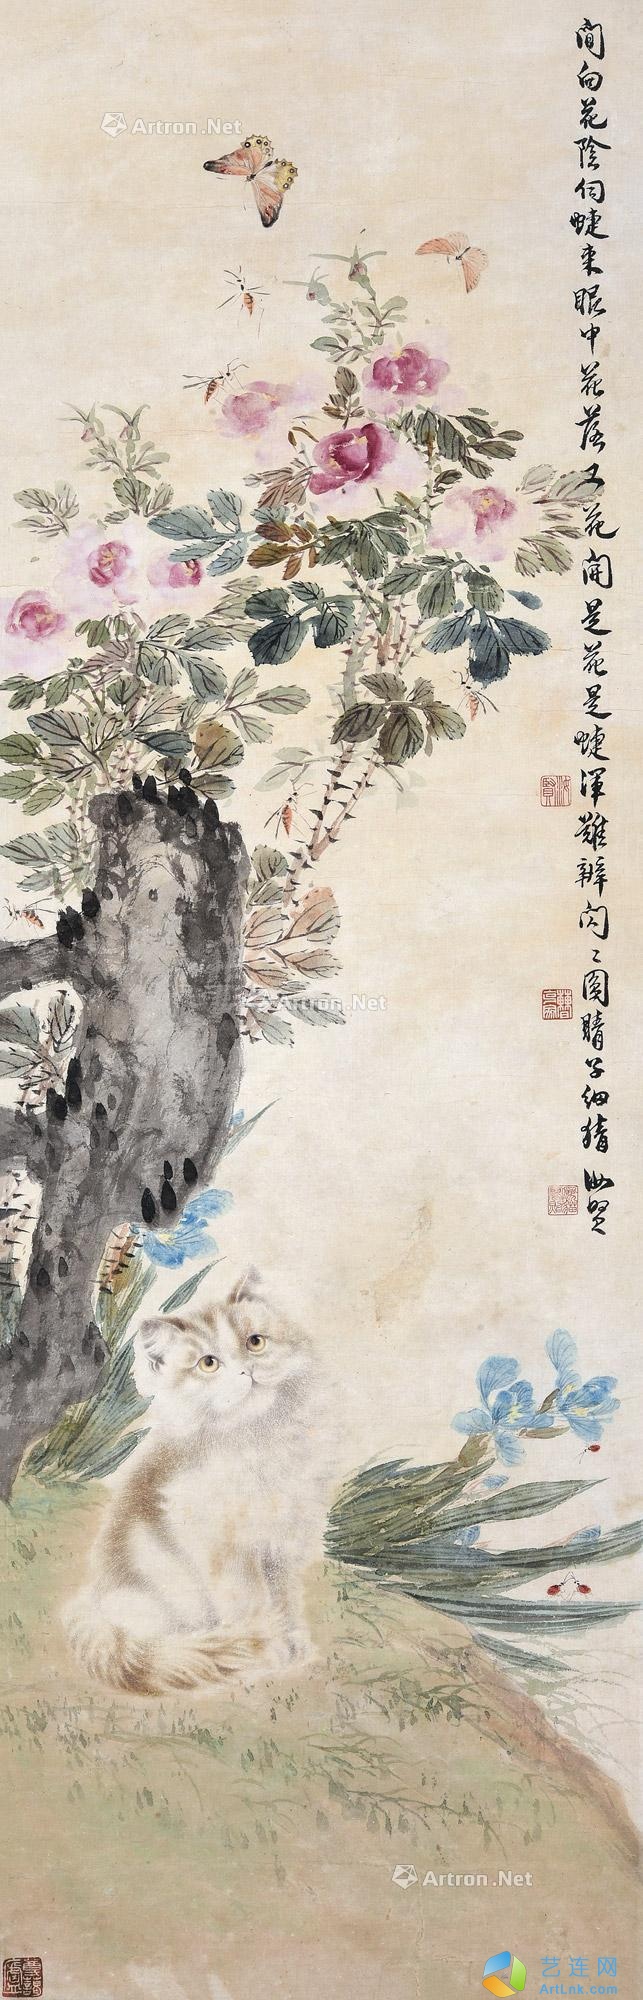 間向花陰伺蜨來眼中花落又花開是花是蜨渾難辨閃〻圓睛子細猜 汝賢
汝賢
Artron.Net
Artron.Net
Artron.Net
艺连网
ArtLnk.com